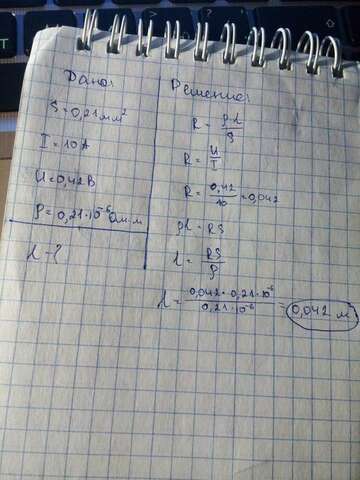 Дано:
S = 0,21 мм²
I = 10 А
U = 0,42 В
ρ = 0,21·10⁻⁶ Ом·м
l - ?
Решение:
R = ρl/S
R = U/I
R = 0,42/10 = 0,042
ρl = RS
l = RS/ρ
l = 0,042·0,21·10⁻⁶/0,21·10⁻⁶ = 0,042 м